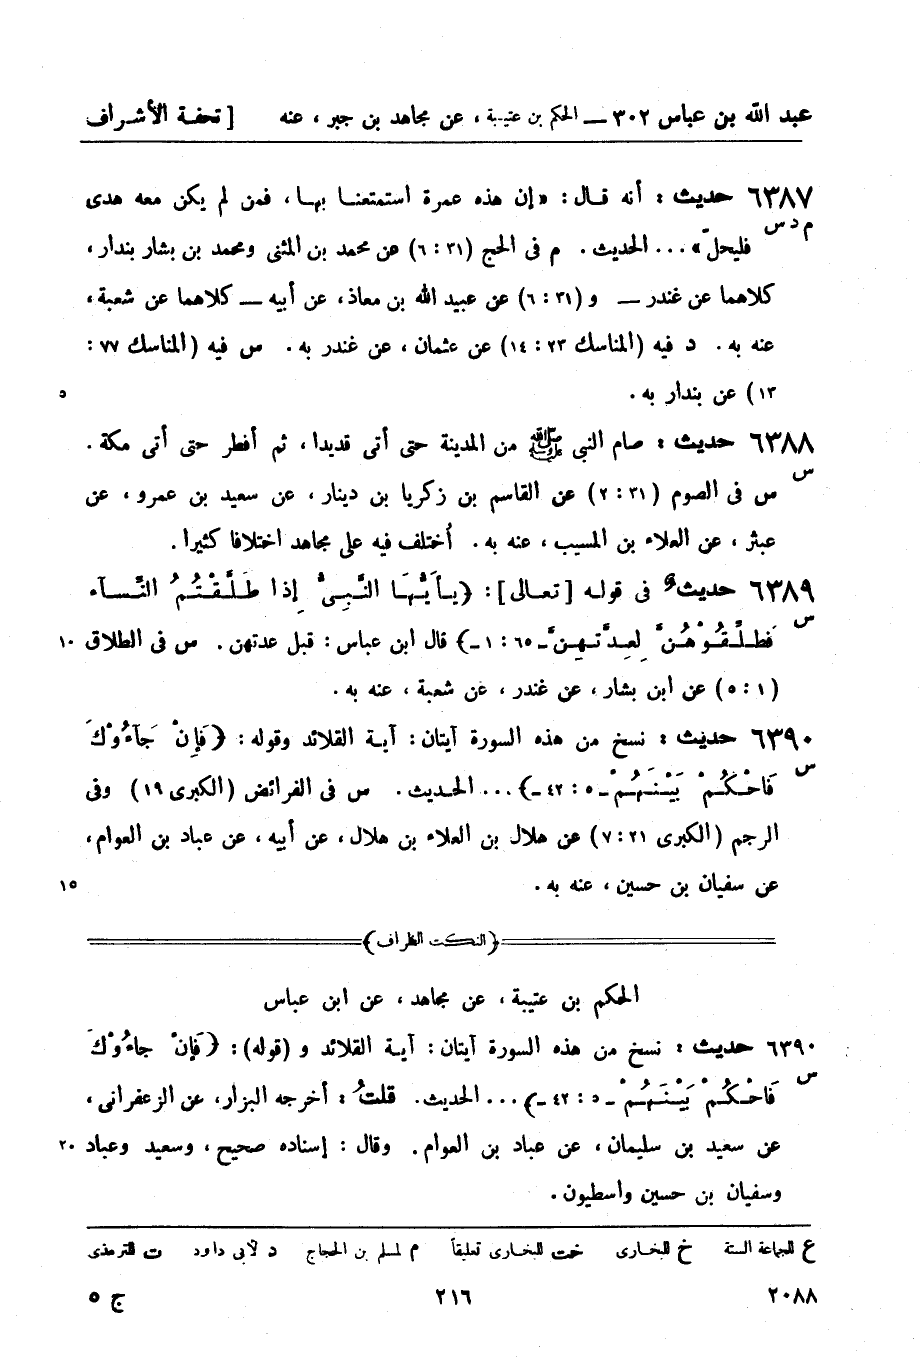 عبد الله بن عباس ٣٠٢ — الحكم بن عتيبة ، عن مجاهد بن جبر ، عنه [ تحفة الأشراف
٦٣٨٧ حديث : أنه قال : «إن هذه عمرة استمتعنا بها ، فمن لم يكن معه هدى
م د س فليحلّ» ... الحديث . م فى الحج (٣١ : ٦) عن محمد بن المثنى ومحمد بن بشار بندار ،
كلاهما عن غندر — و (٣١ : ٦) عن عبيد الله بن معاذ ، عن أبيه — كلاهما عن شعبة ،
عنه به . د فيه (المناسك ٢٣ : ١٤) عن عثمان ، عن غندر به . س فيه (المناسك ٧٧ :
١٣) عن بندار به . ٥
٦٣٨٨ حديث : صام النبى ﷺ من المدينة حتى أتى قديدا ، ثم أفطر حتى أتى مكة .
س س فى الصوم (٣١ : ٢) عن القاسم بن زكريا بن دينار ، عن سعيد بن عمرو ، عن
عبثر ، عن العلاء بن المسيب ، عنه به . أُختلف فيه على مجاهد اختلافا كثيرا .
٦٣٨٩ حديثٌ فى قوله [تعالى] : {يأَيُّهَا النَّبِىُّ إِذا طَلَّقْتُمُ النِّسآء
س فَطلِّقُوْهُنَّ لِعِدَّتهِنَّ ـ ٦٥ : ١ ـ} قال ابن عباس : قبل عدتهن . س فى الطلاق ١٠
(١ : ٥) عن ابن بشار ، عن غندر ، عن شعبة ، عنه به .
٦٣٩٠ حديث : نسخ من هذه السورة آيتان : آية القلائد وقوله : {فَإِنْ جَآءُوْكَ
س فَاحْكُمْ بَيْنَهُمْ ـ ٥ : ٤٢ ـ} ... الحديث . س فى الفرائض (الكبرى ١٩) وفى
الرجم (الكبرى ٢١ : ٧) عن هلال بن العلاء بن هلال ، عن أبيه ، عن عباد بن العوام ،
عن سفيان بن حسين ، عنه به . ١٥
{النكت الظراف}
الحكم بن عتيبة ، عن مجاهد ، عن ابن عباس
٦٣٩٠ حديث : نسخ من هذه السورة آيتان : آية القلائد و (قوله) : {فَإِنْ جاءُوْكَ
س فَاحْكُمْ بَيْنَهُمْ ـ ٥ : ٤٢ ـ} ... الحديث . قلتُ : أخرجه البزار ، عن الزعفرانى ،
عن سعيد بن سليمان ، عن عباد بن العوام . وقال : إسناده صحيح ، وسعيد وعباد ٢٠
وسفيان بن حسين واسطيون .
ع للجماعة الستة خ للبخارى خت للبخارى تعليقاً م لمسلم بن الحجاج د لأبى داود ت للترمذى
٢٠٨٨ ٢١٦ ج ٥